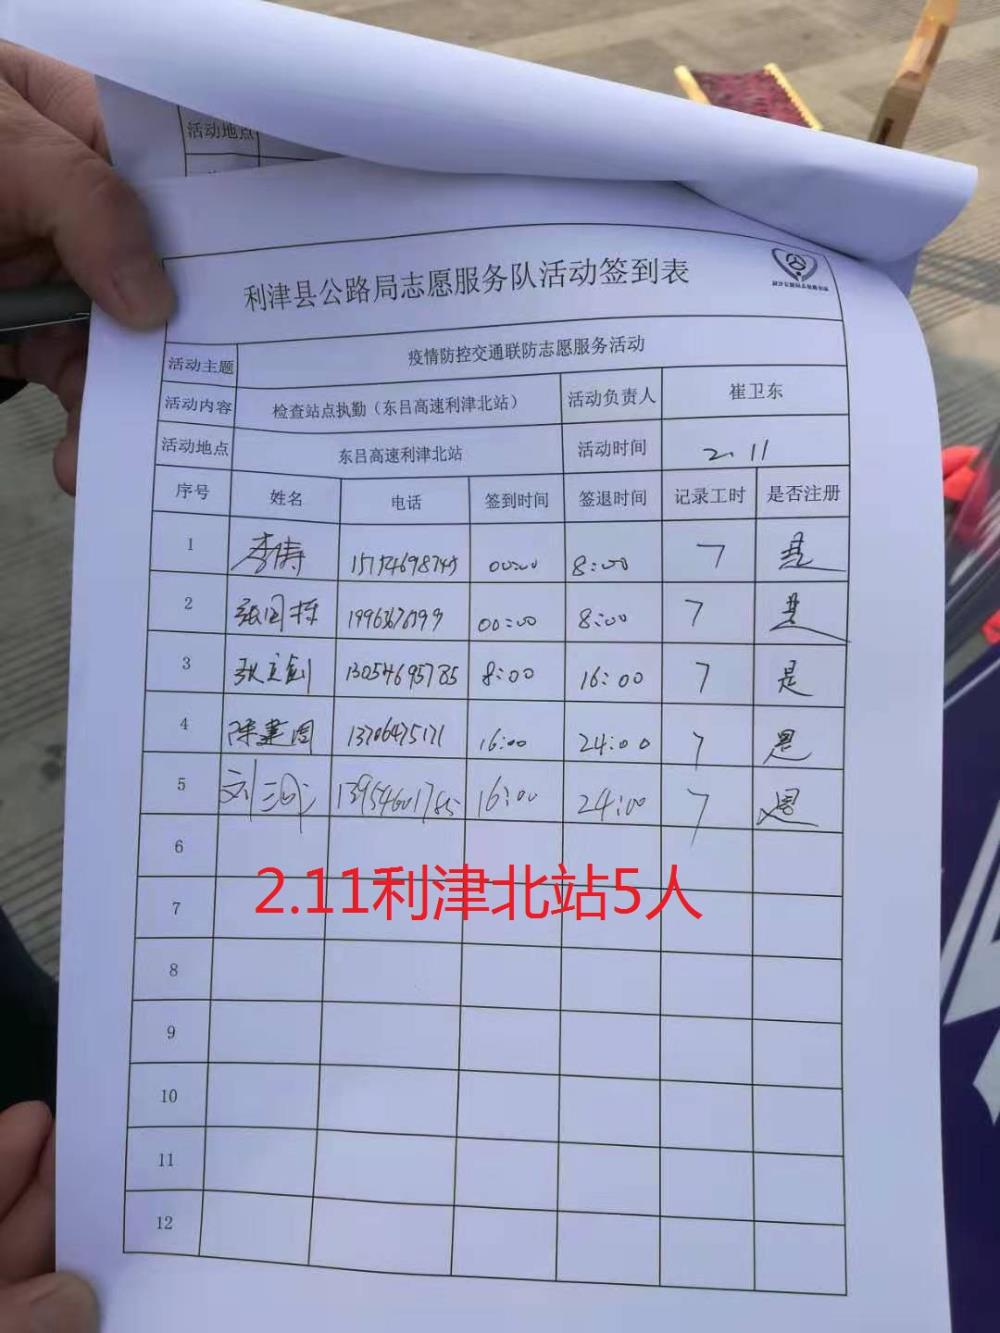 活动地点
利津县公路局志愿服务队活动签到表
活动主题 疫情防控交通联防志愿服务活动
活动内容 检查站点执勤（东吕高速利津北站） 活动负责人 崔卫东
活动地点 东吕高速利津北站 活动时间 2.11
序号 姓名 电话 签到时间 签退时间 记录工时 是否注册
1 李涛 15154698745 00:00 8:00 7 是
2 张国栋 00:00 8:00 7 是
3 张立剑 13054695785 8:00 16:00 7 是
4 陈建国 13706475171 16:00 24:00 7 是
5 13954601785 16:00 24:00 7 是
6
2.11利津北站5人
7
8
9
10
11
12